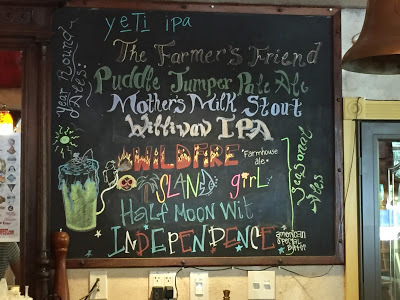 yeTi ipa
The Farmer's Friend
Puddle Jumper Pale Ale
Mother's Milk Stout
Williwaw IPA
Year Round Ales:
WILDFIRE "Farmhouse ale"
ISLAND giRL
HALF MOON Wit
INDEPENDENCE american special bitter
Seasonal Ales